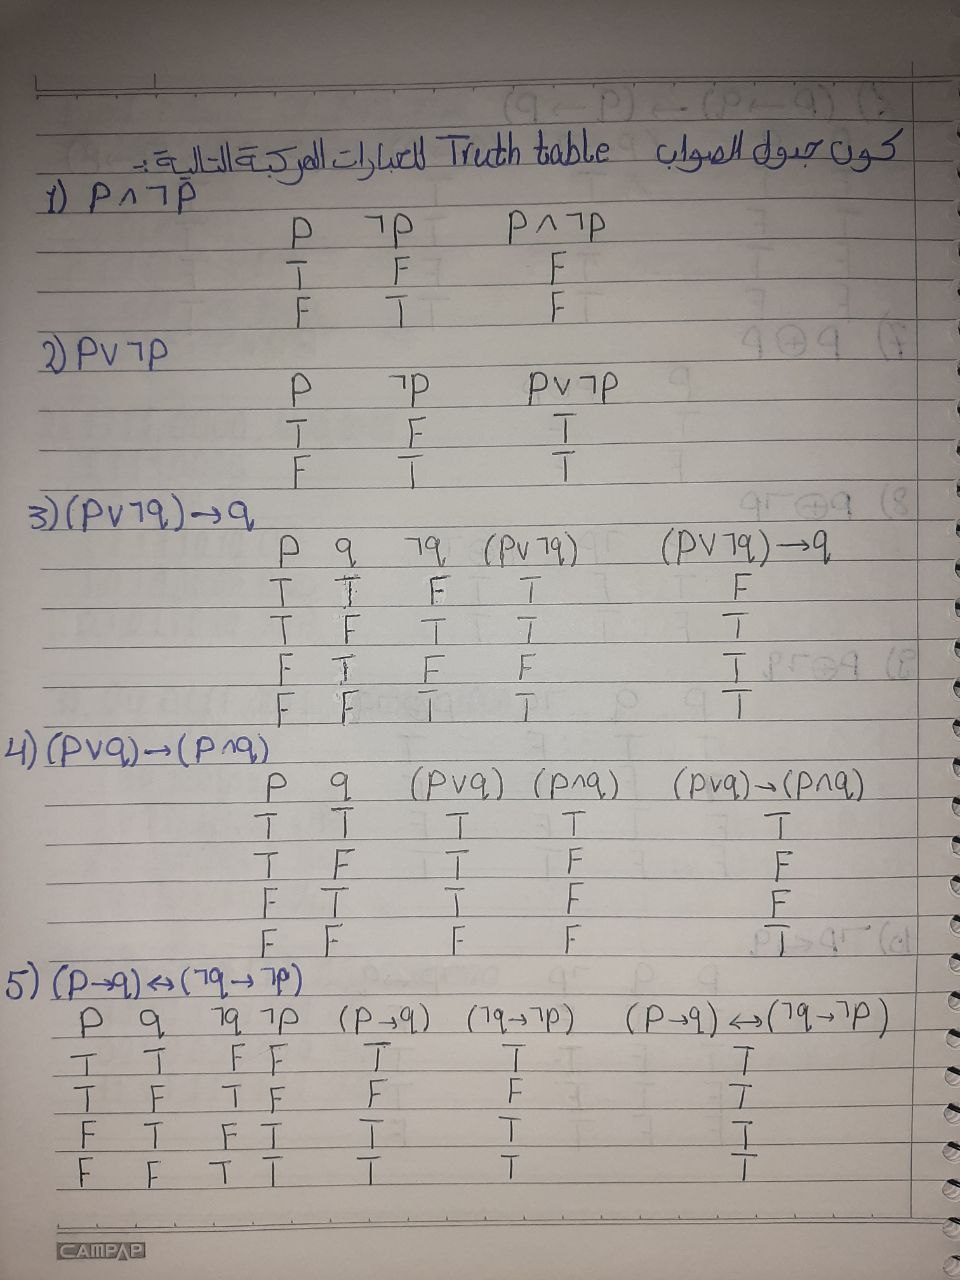 كون جدول الصواب Truth table للعبارات المركبة التالية :-
1) P ∧ ¬P
P ¬P P ∧ ¬P
T F F
F T F
2) P ∨ ¬P
P ¬P P ∨ ¬P
T F T
F T T
3) (P ∨ ¬q) → q
P q ¬q (P ∨ ¬q) (P ∨ ¬q) → q
T T F T F
T F T T T
F T F F T
F F T T T
4) (P ∨ q) → (P ∧ q)
P q (P ∨ q) (P ∧ q) (P ∨ q) → (P ∧ q)
T T T T T
T F T F F
F T T F F
F F F F T
5) (P → q) ↔ (¬q → ¬P)
P q ¬q ¬P (P → q) (¬q → ¬P) (P → q) ↔ (¬q → ¬P)
T T F F T T T
T F T F F F T
F T F T T T T
F F T T T T T
CAMPAP